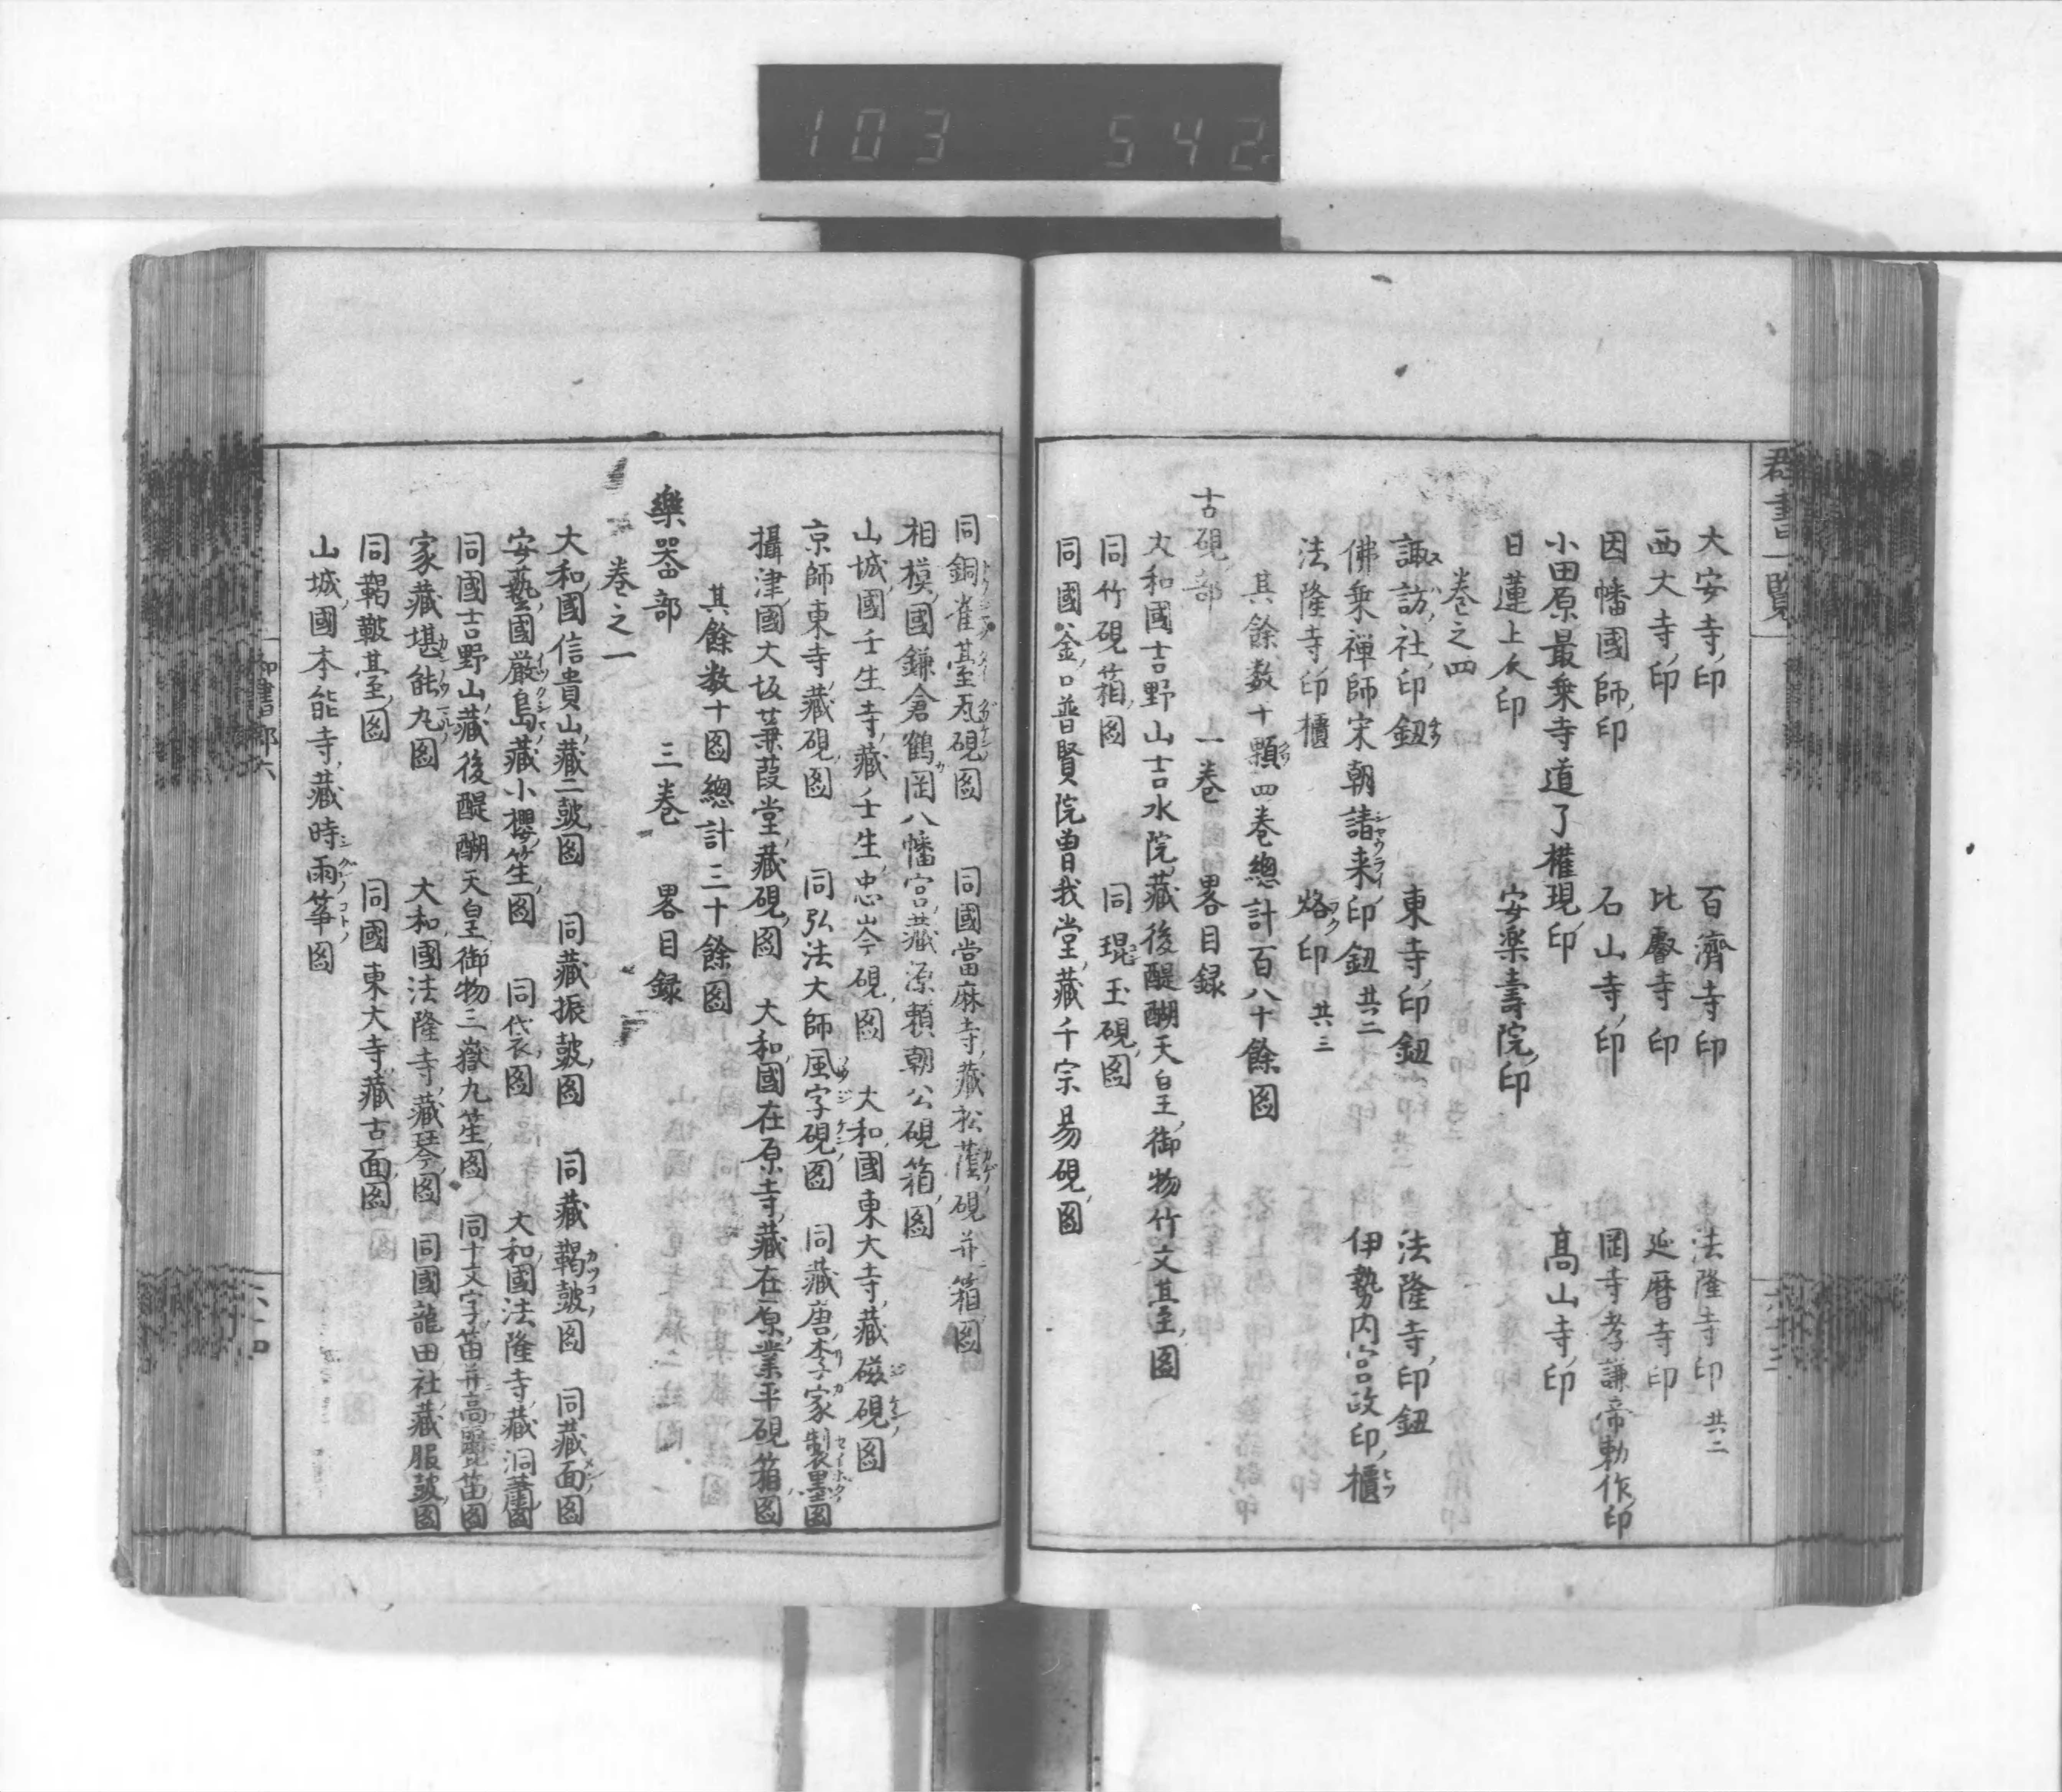 103 542
群書一覧
大安寺印 百濟寺印 法隆寺印 共二
西大寺印 比叡寺印 延暦寺印
因幡國師印 石山寺印 岡寺孝謙帝勅作印
小田原最乗寺道了權現印 高山寺印
日蓮上人印 安楽壽院印
巻之四
諏訪社印鈕 東寺印鈕 法隆寺印鈕
佛乗禅師宋朝請来印鈕 共二 伊勢内宮政印櫃
法隆寺印櫃 烙印 共三
其餘数十顆四巻總計百八十餘圖
古硯部 一巻 畧目録
大和國吉野山吉水院藏後醍醐天皇御物竹文基圖
同竹硯箱圖 同琨玉硯圖
同國釜口普賢院曽我堂藏千宗易硯圖
同銅雀臺瓦硯圖 同國當麻寺藏松蔭硯并箱圖
相模國鎌倉鶴岡八幡宮藏源頼朝公硯箱圖
山城國壬生寺藏壬生忠岑硯圖 大和國東大寺藏磁硯圖
京師東寺藏硯圖 同弘法大師風字硯圖 同藏唐李家製墨圖
攝津國大坂蒹葭堂藏硯圖 大和國在原寺藏在原業平硯箱圖
其餘数十圖總計三十餘圖
樂器部 三巻 畧目録
巻之一
大和國信貴山藏二鼓圖 同藏振鼓圖 同藏鞨鼓圖 同藏面圖
安藝國厳島藏小櫻笙圖 同袋圖 大和國法隆寺藏洞簫圖
同國吉野山藏後醍醐天皇御物三嶽丸笙圖 同十文字笛并高麗笛圖
家藏堪能丸圖 大和國法隆寺藏琴圖 同國龍田社藏服鼓圖
同鞨鼓臺圖 同國東大寺藏古面圖
山城國本能寺藏時雨筝圖
和書部六